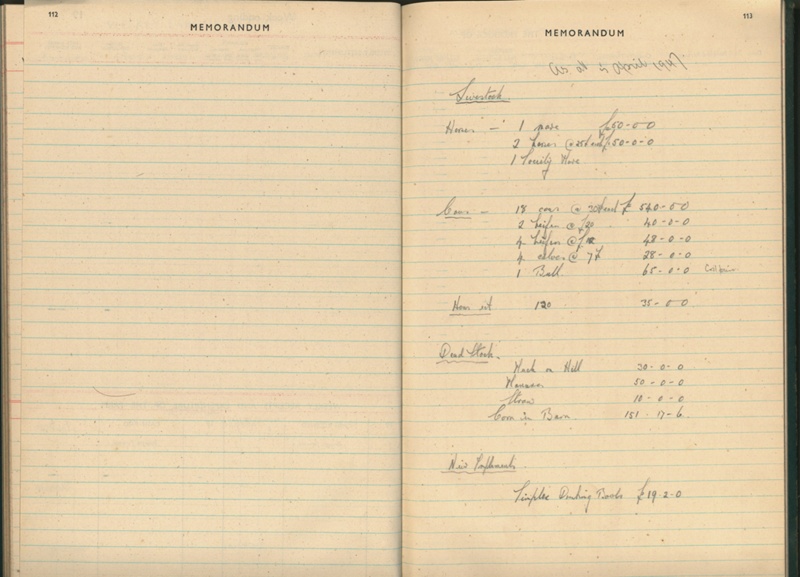 112
MEMORANDUM
113
MEMORANDUM
As at 4 April 1947
Livestock
Horses — 1 mare £50-0-0
2 horses @ 25 £50-0-0
1 Mare
Cows — 18 cows @ 30 £ 540-0-0
2 heifers @ £20 40-0-0
4 heifers @ £12 48-0-0
4 calves @ 7£ 28-0-0
1 Bull 65-0-0
120 35-0-0
Dead Stock.
on Hill 30-0-0
Manure 50-0-0
Straw 10-0-0
Corn in Barn 151-17-6
New Implements
Simplex Drinking Bowls £19-2-0